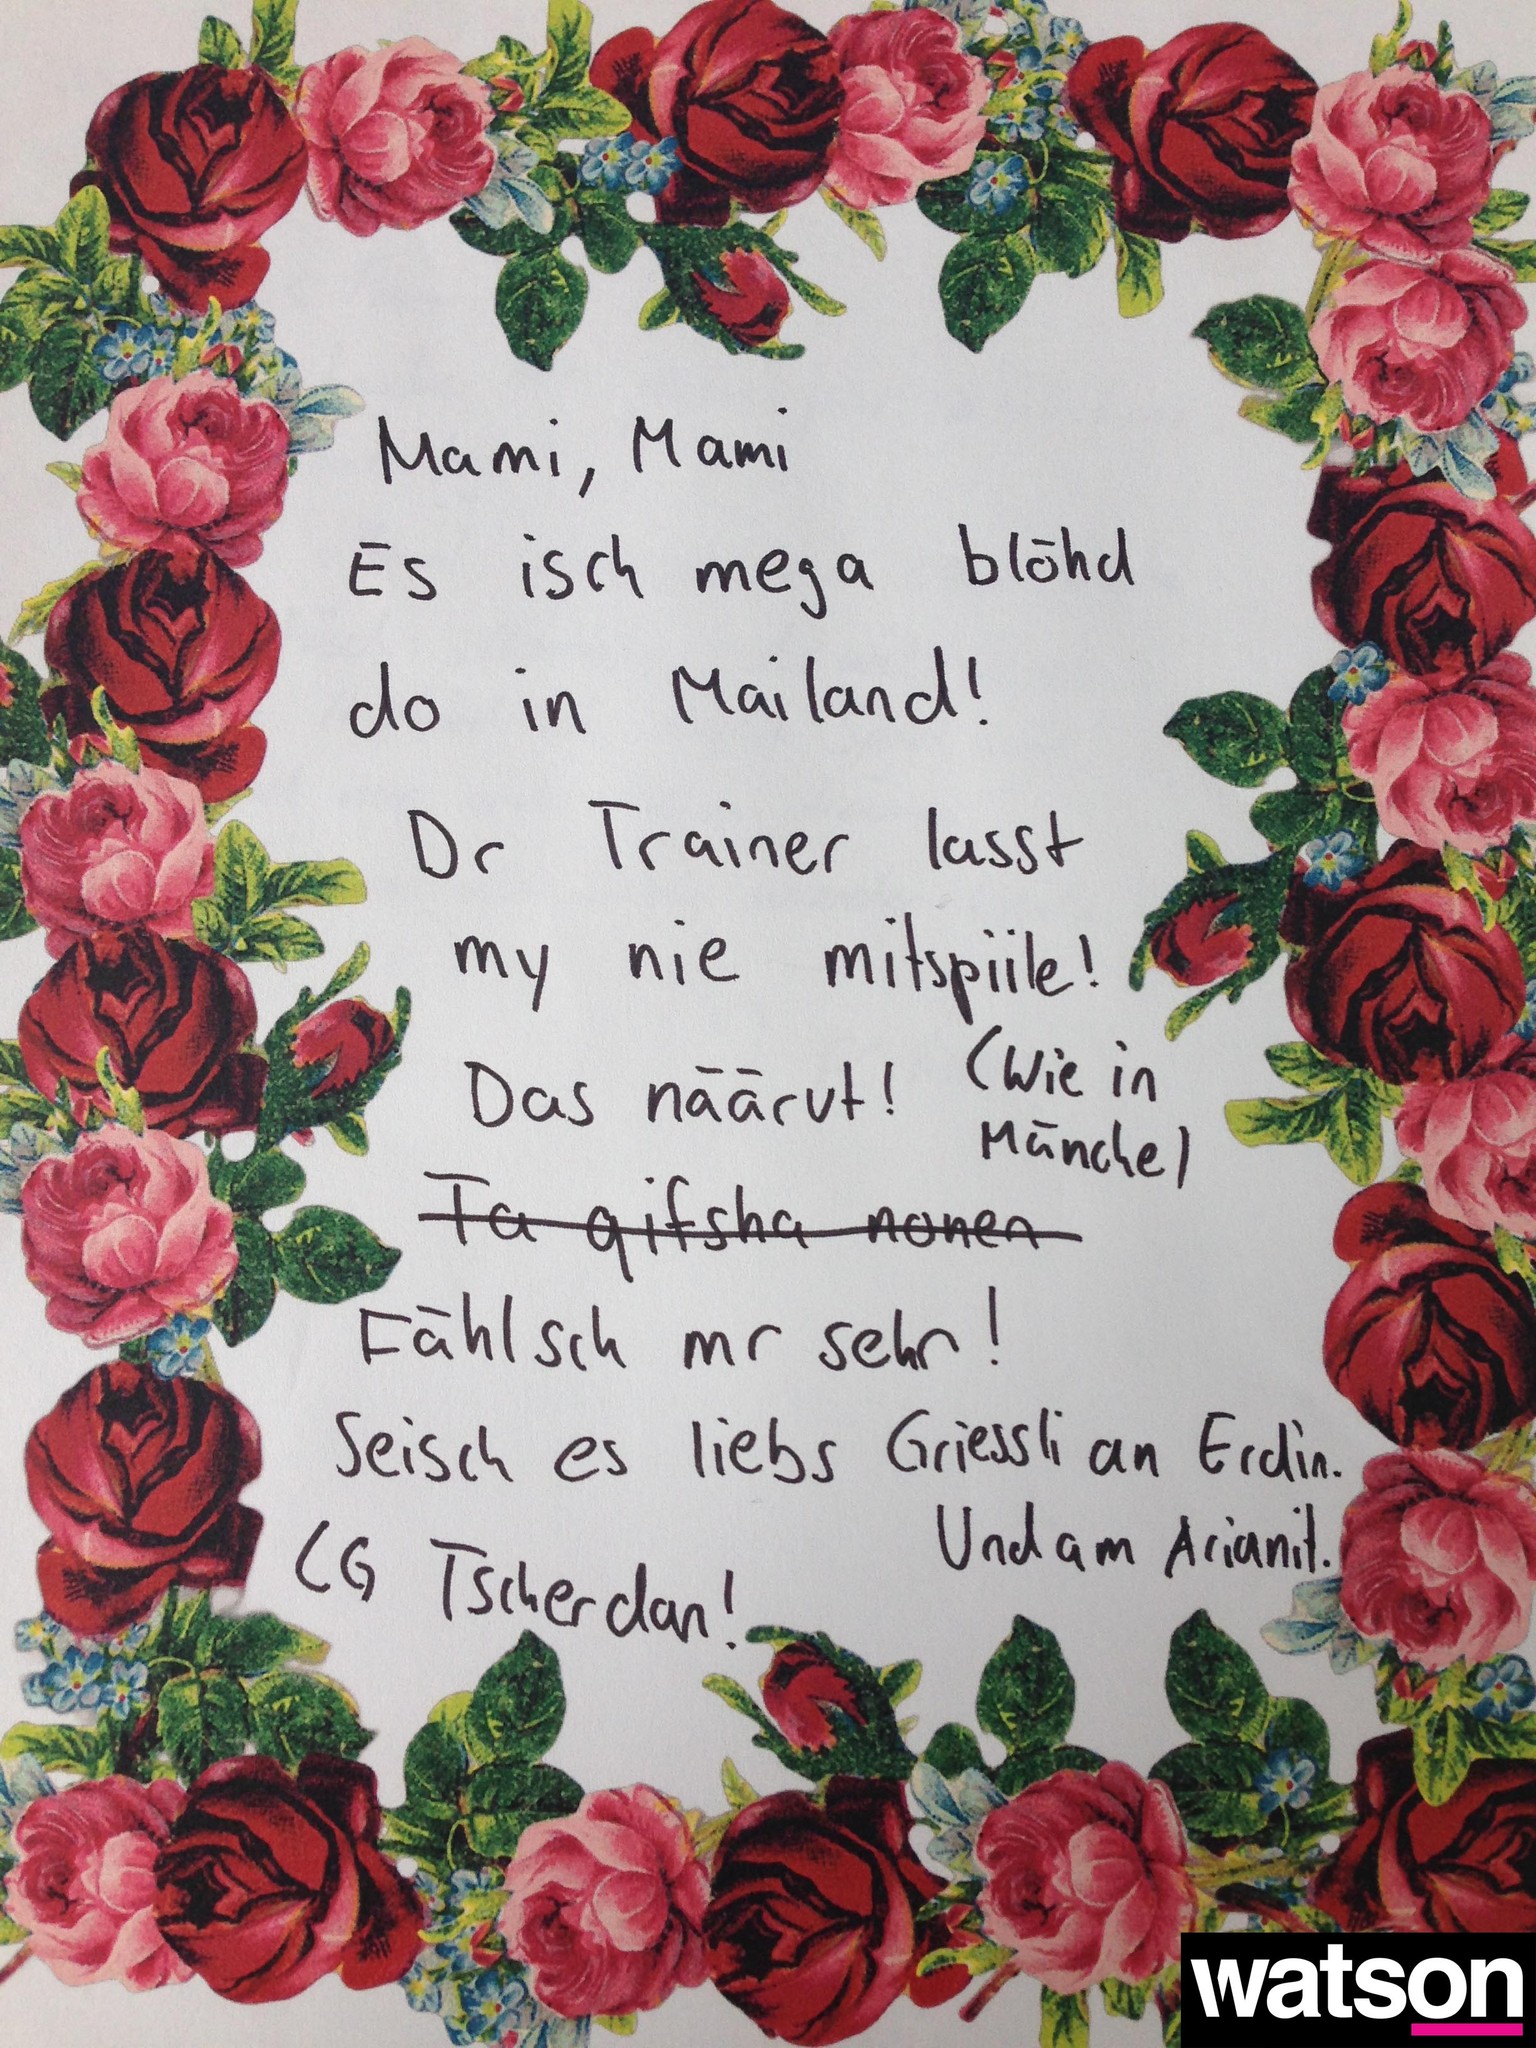 Mami, Mami
Es isch mega blöhd
do in Mailand!
Dr Trainer lasst
my nie mitspiile!
Das näärvt! (Wie in
Mänche)
Ta qifsha nonen
Fählsch mr sehr!
Seisch es liebs Griessli an Erdin.
Und am Arianit.
LG Tscherdan!
watson